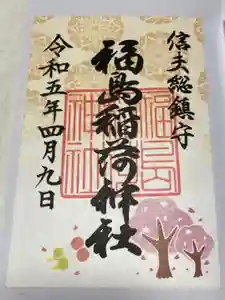 信夫総鎮守
福島稲荷神社
令和五年四月九日